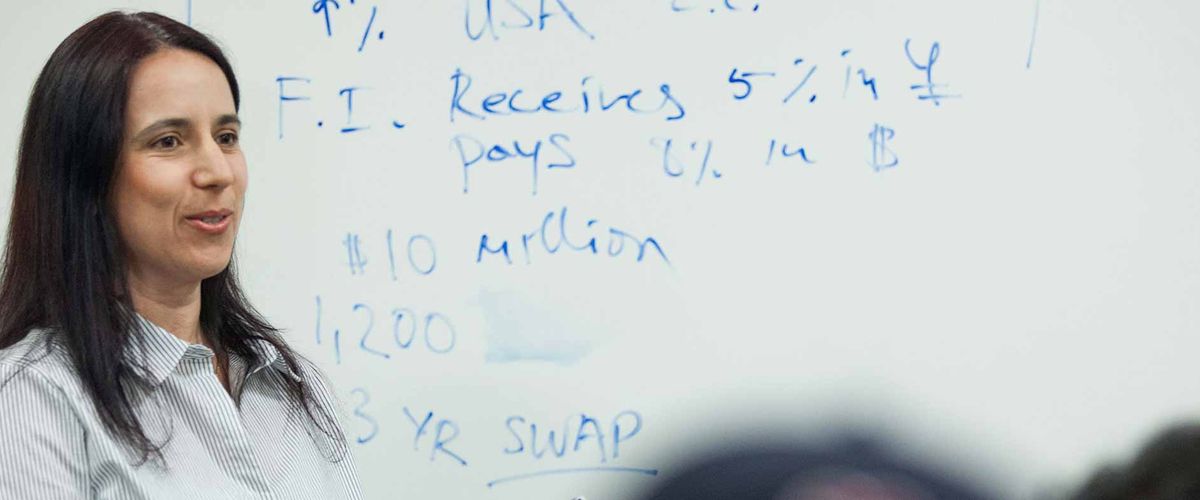 % USA
F.I. Receives 5% in ¥
pays 8% in $
$10 Million
1,200
3 YR SWAP